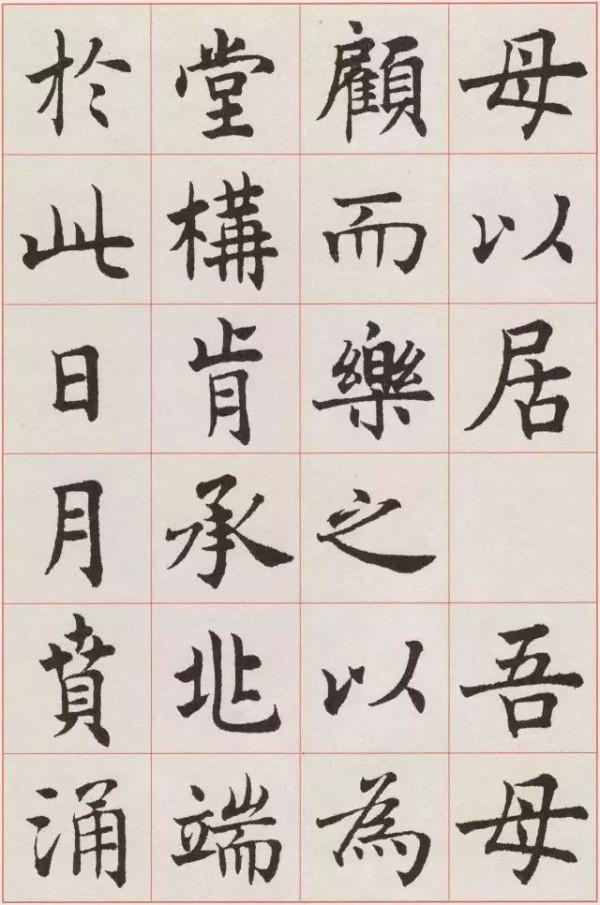 母以居 吾母
顧而樂之以為
堂構肯承兆端
於此日月賁涌